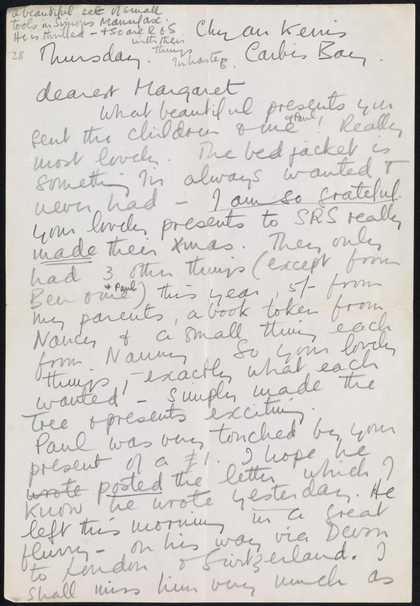 a beautiful set of small
tools
He is thrilled - + so are R & S
with their
things
in haste
28
Chy an Kerris
Thursday. Carbis Bay.
dearest Margaret
What beautiful presents you
sent the children & me & Paul! Really
most lovely. The bed jacket is
something I've always wanted &
never had – I am so grateful.
Your lovely presents to SRS really
made their Xmas. They only
had 3 other things (except from
Ben & me & Paul) this year, 5/- from
my parents, a book token from
Nancy & a small thing each
from Nanny. So your lovely
things, - exactly what each
wanted - simply made the
tree & presents exciting.
Paul was very touched by your
present of a £1. I hope he
wrote posted the letter which I
know he wrote yesterday. He
left this morning in a great
flurry – on his way via Devon
to London & Switzerland. I
shall miss him very much as